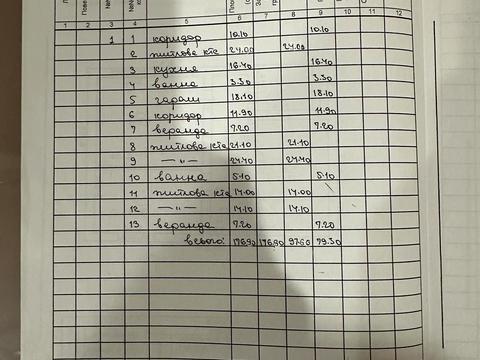 1 2 3 4 5 6 7 8 9 10 11 12
1 1 коридор 10.10 10.10
2 житлова кта 24.00 24.00
3 кухня 16.40 16.40
4 ванна 3.30 3.30
5 гараж 18.10 18.10
6 коридор 11.90 11.90
7 веранда 7.20 7.20
8 житлова кта 21.10 21.10
9 —"— 24.40 24.40
10 ванна 5.10 5.10
11 житлова кта 14.00 14.00
12 —"— 14.10 14.10
13 веранда 7.20 7.20
всього: 176.90 176.90 97.60 79.30